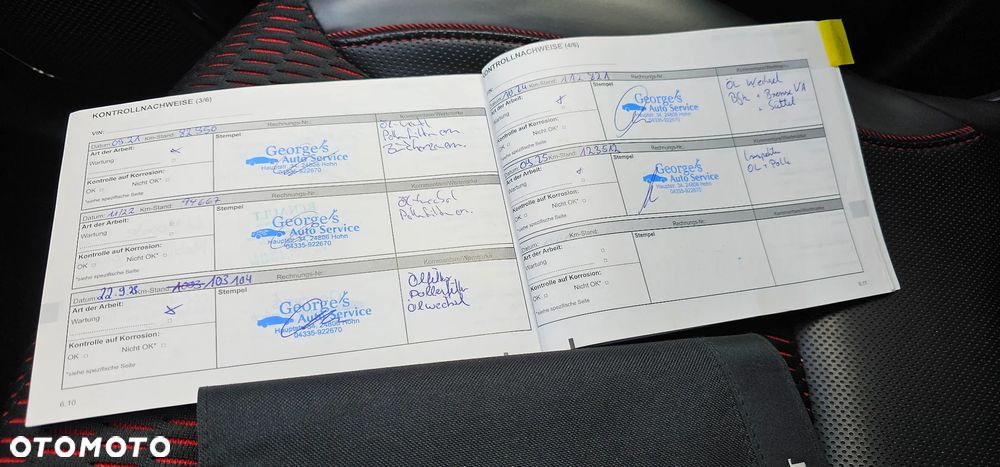 KONTROLLNACHWEISE (3/6)
VIN:
Datum: 09.21 Km-Stand: 82 950
Rechnungs-Nr.
Kommentare/Werkmarke
Art der Arbeit:
Stempel
Wartung
Kontrolle auf Korrosion:
OK Nicht OK*
*siehe spezifische Seite
George's
Auto Service
Hauptstr. 34, 24806 Hohn
04335-922670
Datum: 11/22 Km-Stand: 94667
Rechnungs-Nr.
Kommentare/Werkmarke
Art der Arbeit:
Stempel
Wartung
Kontrolle auf Korrosion:
OK Nicht OK*
*siehe spezifische Seite
George's
Auto Service
Hauptstr. 34, 24806 Hohn
04335-922670
Ölwechsel
Pollenfilter
Datum: 22.9.23 Km-Stand: 103 104
Rechnungs-Nr.
Kommentare/Werkmarke
Art der Arbeit:
Stempel
Wartung
Kontrolle auf Korrosion:
OK Nicht OK*
*siehe spezifische Seite
George's
Auto Service
Hauptstr. 34, 24806 Hohn
04335-922670
Ölfilter
Pollenfilter
Ölwechsel
6.10
KONTROLLNACHWEISE (4/6)
VIN:
Datum: 10.24 Km-Stand: 112 821
Rechnungs-Nr.
Kommentare/Werkmarke
Art der Arbeit:
Stempel
Wartung
Kontrolle auf Korrosion:
OK Nicht OK*
*siehe spezifische Seite
George's
Auto Service
Hauptstr. 34, 24806 Hohn
04335-922670
ÖL Wechsel
Bfk + Bremse VA
+ Sattel
Datum: 09.25 Km-Stand: 123512
Rechnungs-Nr.
Kommentare/Werkmarke
Art der Arbeit:
Stempel
Wartung
Kontrolle auf Korrosion:
OK Nicht OK*
*siehe spezifische Seite
George's
Auto Service
Hauptstr. 34, 24806 Hohn
04335-922670
Inspektion
ÖL + Polle
Datum: Km-Stand:
Rechnungs-Nr.
Kommentare/Werkmarke
Art der Arbeit:
Stempel
Wartung
Kontrolle auf Korrosion:
OK Nicht OK*
*siehe spezifische Seite
6.11
OTOMOTO